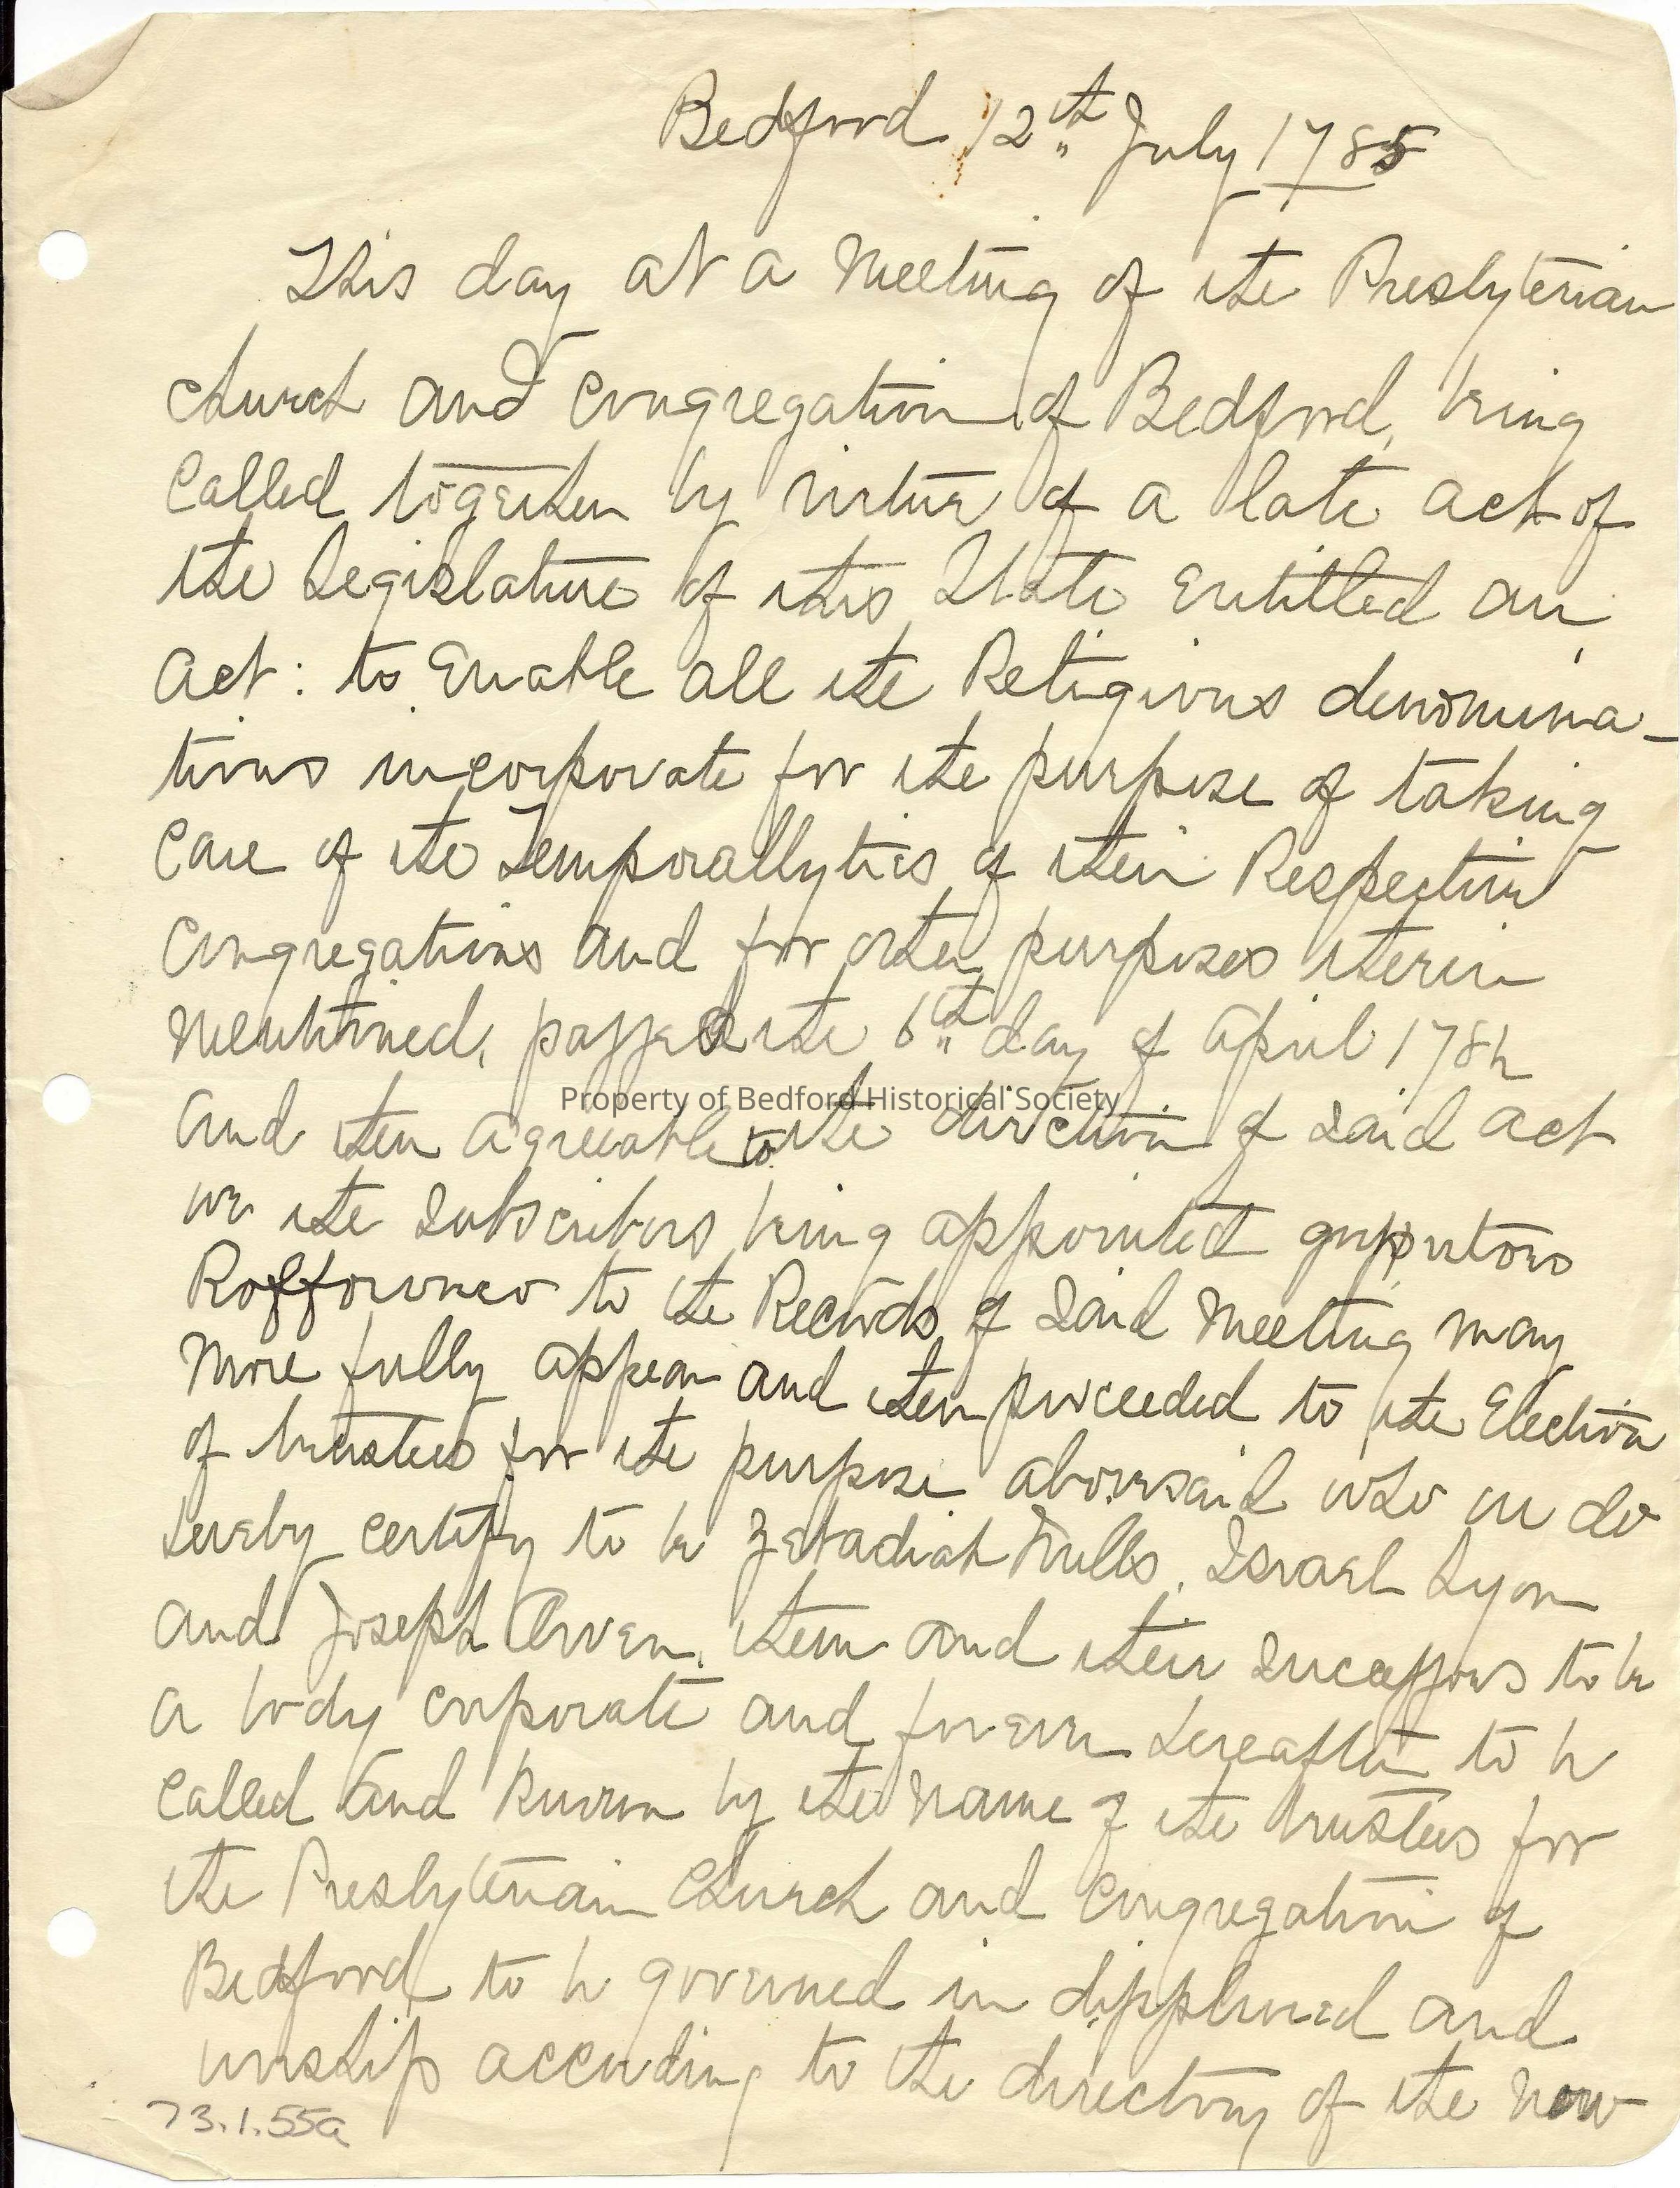 Bedford 12th July 1785
This day at a Meeting of the Presbyterian
church and Congregation of Bedford, being
Called together by virtue of a late act of
the Legislature of this State Entitled an
Act: to Enable all the Religious denomina-
tions incorporate for the purpose of taking
Care of the Temporallyties of their Respective
Congregations and for other purposes therein
Mentioned, passed the 6th day of April 1784
Property of Bedford Historical Society
And then agreeable to the direction of Said act
we the Subscribers being appointed
to the Records of Said Meeting may
More fully appear and then proceeded to the Election
of trustees for the purpose abovesaid who we do
hereby certify to be Zebadiah Mills, Israel Lyon
and Joseph Owen, them and their Successors to be
a body corporate and forever hereafter to be
Called and known by the Name of the trustees for
the Presbyterian Church and Congregation of
Bedford to be governed in and
worship according to the directory of the Now
73.1.55a